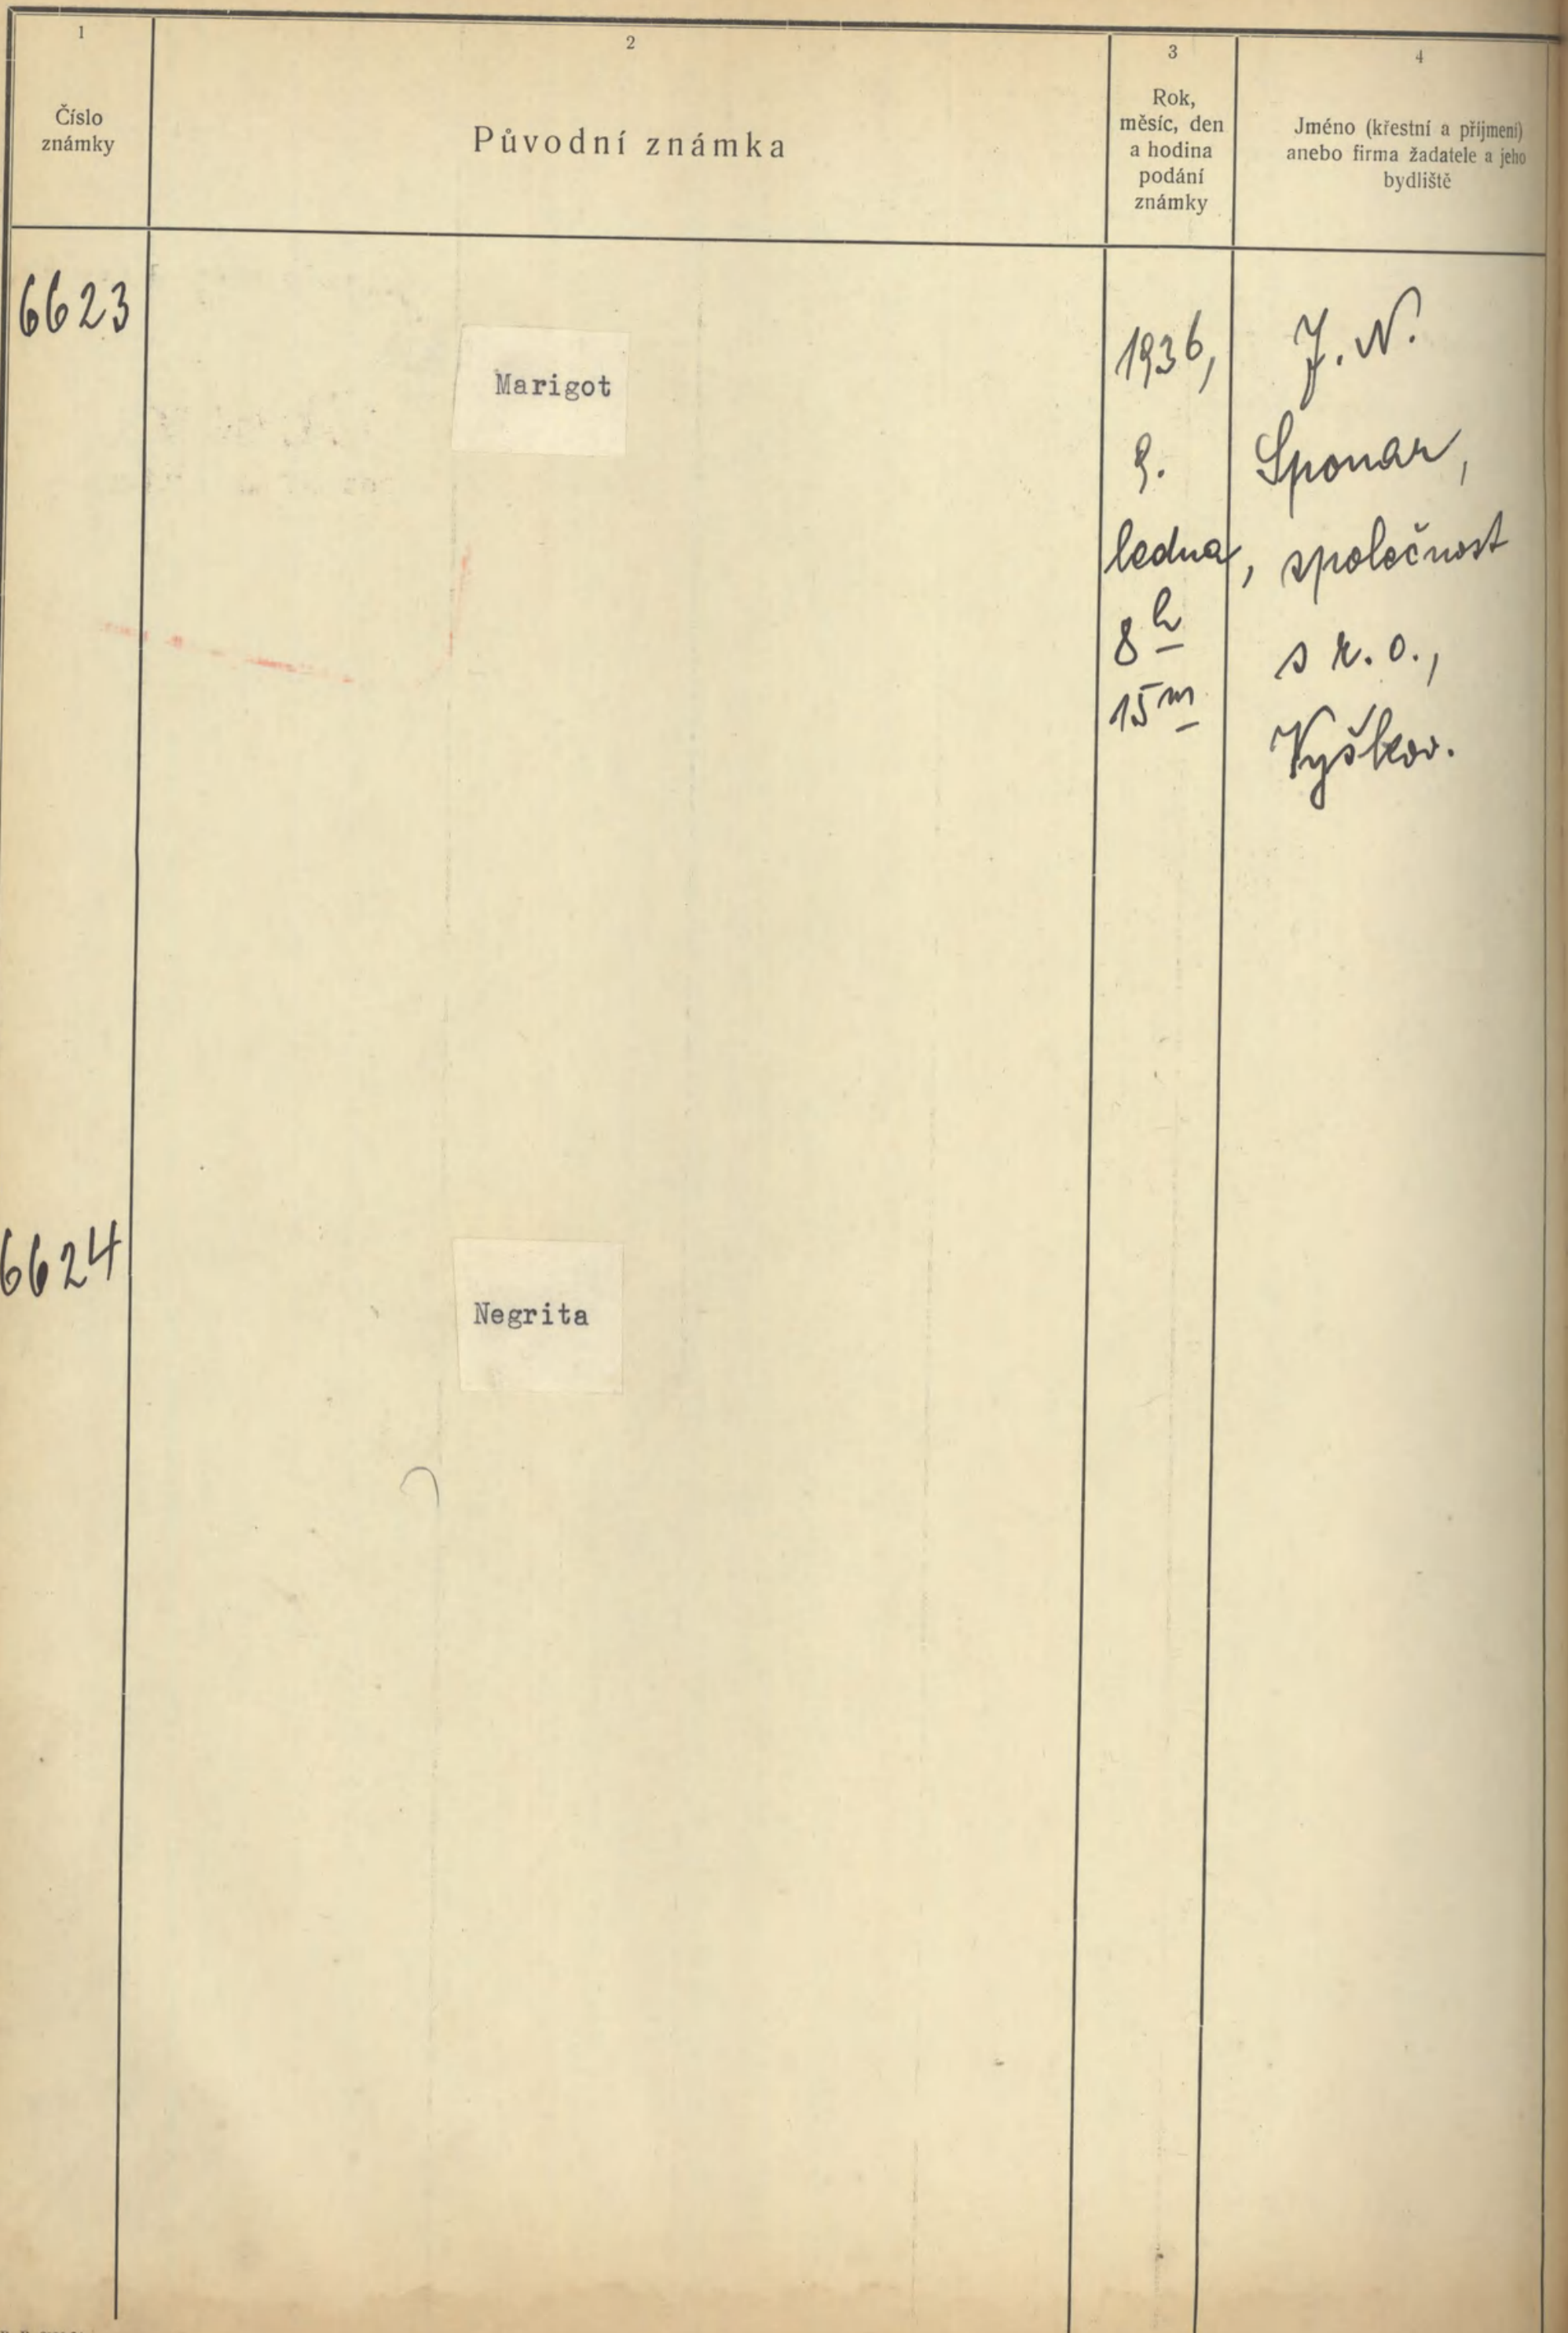 1
Číslo
známky
2
Původní známka
3
Rok,
měsíc, den
a hodina
podání
známky
4
Jméno (křestní a příjmení)
anebo firma žadatele a jeho
bydliště
6623
Marigot
1936,
9.
ledna,
8h
15m
J. N.
Sponar,
společnost
s r. o.,
Vyškov.
6624
Negrita